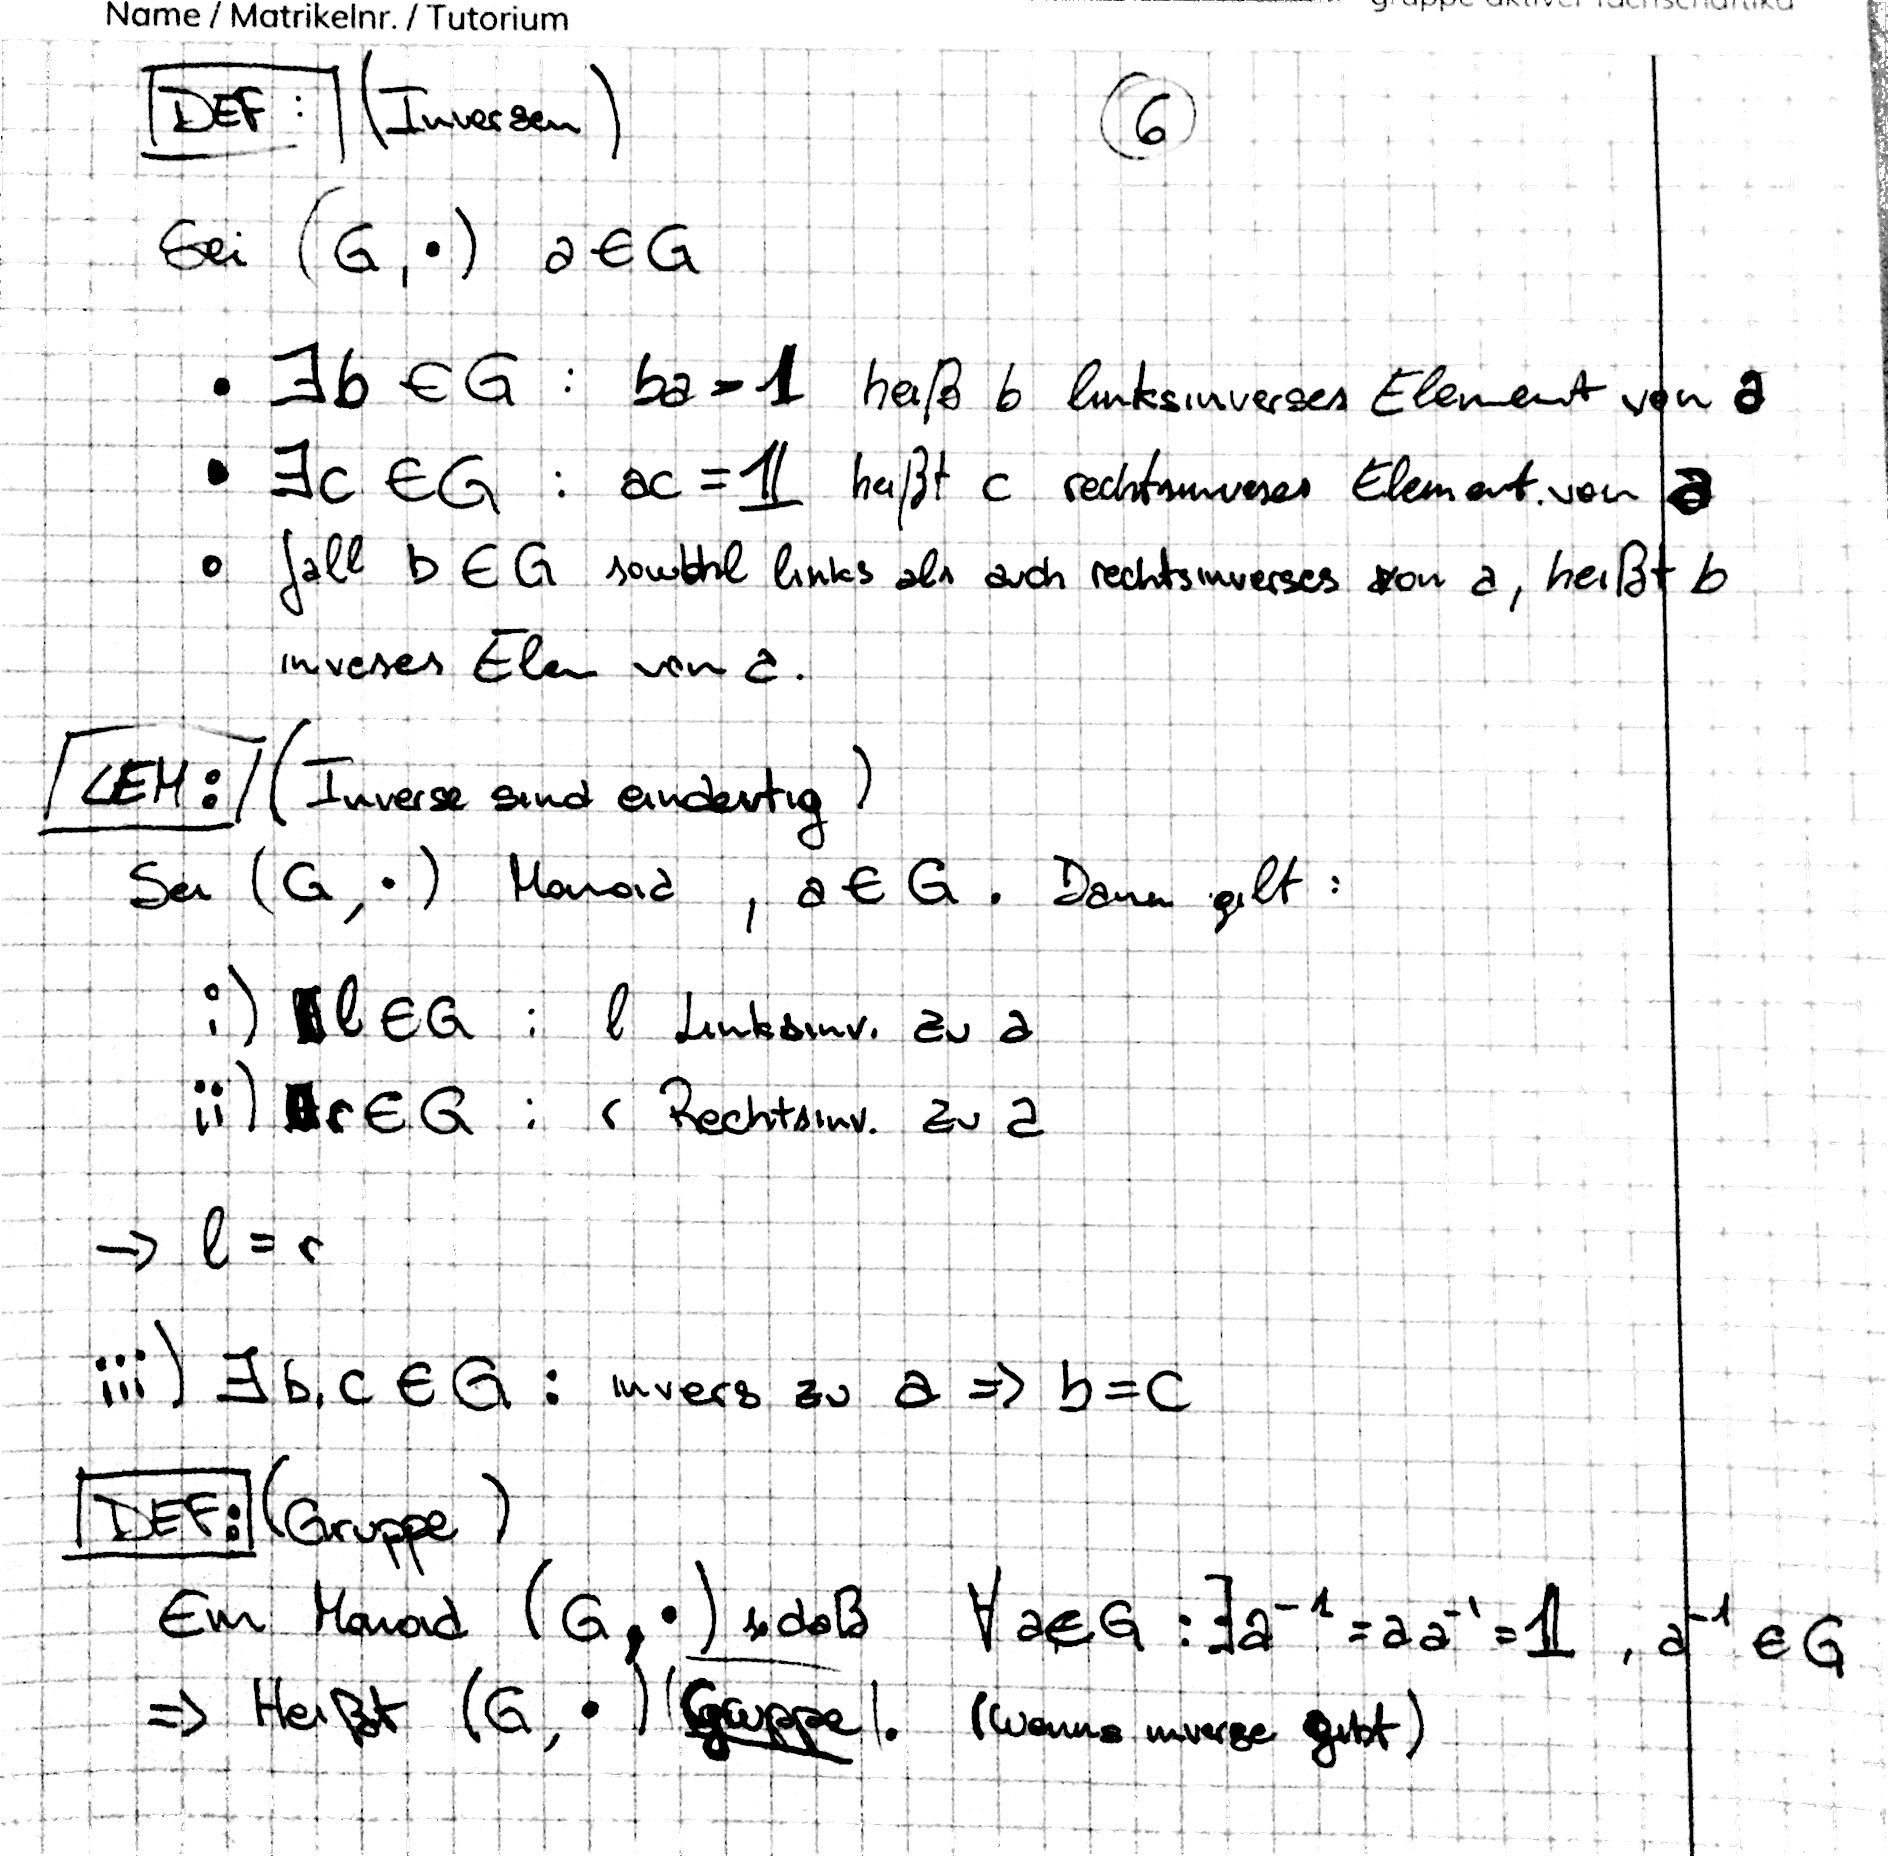 Name / Matrikelnr. / Tutorium
gruppe aktiver fachschaftika
DEF: (Inversen) 6
Sei (G, •) a ∈ G
• ∃b ∈ G : ba = 1 heiß b linksinverses Element von a
• ∃c ∈ G : ac = 1 heißt c rechtsinveses Element von a
• fall b ∈ G sowohl links als auch rechtsinverses von a, heißt b
inveses Elem von a.
LEM: (Inverse sind eindeutig)
Sei (G, •) Monoid , a ∈ G. Dann gilt :
i) l ∈ G : l Linksinv. zu a
ii) r ∈ G : r Rechtsinv. zu a
→ l = r
iii) ∃ b, c ∈ G : invers zu a ⇒ b = c
DEF: (Gruppe)
Ein Monoid (G, •) sdaß ∀ a ∈ G : ∃a⁻¹ = aa⁻¹ = 1 , a⁻¹ ∈ G
⇒ Heißt (G, •) Gruppe. (wenns inverse gibt)